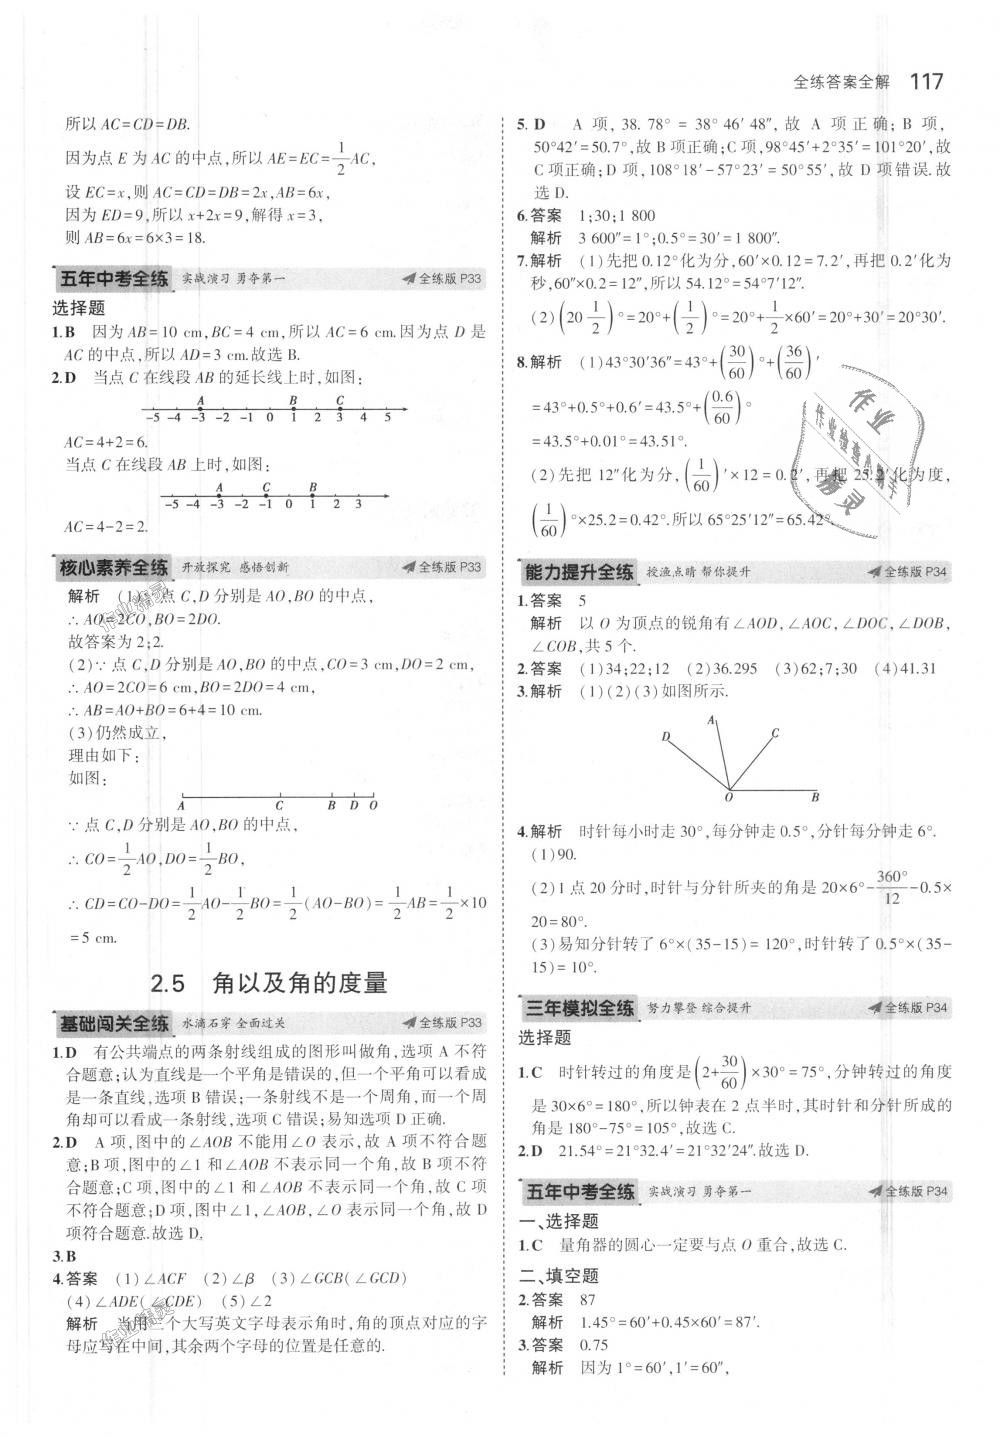 全练答案全解 117
所以 AC=CD=DB.
因为点 E 为 AC 的中点,所以 AE=EC=1/2AC,
设 EC=x,则 AC=CD=DB=2x,AB=6x,
因为 ED=9,所以 x+2x=9,解得 x=3,
则 AB=6x=6×3=18.
五年中考全练 实战演习 勇夺第一 全练版 P33
选择题
1.B 因为 AB=10 cm,BC=4 cm,所以 AC=6 cm.因为点 D 是
AC 的中点,所以 AD=3 cm.故选 B.
2.D 当点 C 在线段 AB 的延长线上时,如图:
A B C
-5 -4 -3 -2 -1 0 1 2 3 4 5
AC=4+2=6.
当点 C 在线段 AB 上时,如图:
A C B
-5 -4 -3 -2 -1 0 1 2 3
AC=4-2=2.
核心素养全练 开放探究 感悟创新 全练版 P33
解析 (1)∵点 C,D 分别是 AO,BO 的中点,
∴AO=2CO,BO=2DO.
故答案为 2;2.
(2)∵点 C,D 分别是 AO,BO 的中点,CO=3 cm,DO=2 cm,
∴AO=2CO=6 cm,BO=2DO=4 cm,
∴AB=AO+BO=6+4=10 cm.
(3)仍然成立,
理由如下:
如图:
A C B D O
∵点 C,D 分别是 AO,BO 的中点,
∴CO=1/2AO,DO=1/2BO,
∴CD=CO-DO=1/2AO-1/2BO=1/2(AO-BO)=1/2AB=1/2×10
=5 cm.
2.5 角以及角的度量
基础闯关全练 水滴石穿 全面过关 全练版 P33
1.D 有公共端点的两条射线组成的图形叫做角,选项 A 不符
合题意;认为直线是一个平角是错误的,但一个平角可以看成
是一条直线,选项 B 错误;一条射线不是一个周角,而一个周
角却可以看成一条射线,选项 C 错误;易知选项 D 正确.
2.D A 项,图中的∠AOB 不能用∠O 表示,故 A 项不符合题
意;B 项,图中的∠1 和∠AOB 不表示同一个角,故 B 项不符
合题意;C 项,图中的∠1 和∠AOB 不表示同一个角,故 C 项
不符合题意;D 项,图中∠1,∠AOB,∠O 表示同一个角,故 D
项符合题意.故选 D.
3.B
4.答案 (1)∠ACF (2)∠β (3)∠GCB(∠GCD)
(4)∠ADE(∠CDE) (5)∠2
解析 当用三个大写英文字母表示角时,角的顶点对应的字
母应写在中间,其余两个字母的位置是任意的.
5.D A 项,38.78°=38°46′48″,故 A 项正确;B 项,
50°42′=50.7°,故 B 项正确;C 项,98°45′+2°35′=101°20′,故
C 项正确;D 项,108°18′-57°23′=50°55′,故 D 项错误.故
选 D.
6.答案 1;30;1 800
解析 3 600″=1°;0.5°=30′=1 800″.
7.解析 (1)先把 0.12°化为分,60′×0.12=7.2′,再把 0.2′化为
秒,60″×0.2=12″,所以 54.12°=54°7′12″.
(2)(20 1/2)°=20°+(1/2)°=20°+1/2×60′=20°+30′=20°30′.
8.解析 (1)43°30′36″=43°+(30/60)°+(36/60)′
=43°+0.5°+0.6′=43.5°+(0.6/60)°
=43.5°+0.01°=43.51°.
(2)先把 12″化为分,(1/60)′×12=0.2′,再把 25.2′化为度,
(1/60)°×25.2=0.42°.所以 65°25′12″=65.42°.
能力提升全练 授渔点睛 帮你提升 全练版 P34
1.答案 5
解析 以 O 为顶点的锐角有∠AOD,∠AOC,∠DOC,∠DOB,
∠COB,共 5 个.
2.答案 (1)34;22;12 (2)36.295 (3)62;7;30 (4)41.31
3.解析 (1)(2)(3)如图所示.
A
D C
O B
4.解析 时针每小时走 30°,每分钟走 0.5°,分针每分钟走 6°.
(1)90.
(2)1 点 20 分时,时针与分针所夹的角是 20×6°-360°/12-0.5×
20=80°.
(3)易知分针转了 6°×(35-15)=120°,时针转了 0.5°×(35-
15)=10°.
三年模拟全练 努力攀登 综合提升 全练版 P34
选择题
1.C 时针转过的角度是(2+30/60)×30°=75°,分钟转过的角度
是 30×6°=180°,所以钟表在 2 点半时,其时针和分针所成的
角是 180°-75°=105°,故选 C.
2.D 21.54°=21°32.4′=21°32′24″.故选 D.
五年中考全练 实战演习 勇夺第一 全练版 P34
一、选择题
1.C 量角器的圆心一定要与点 O 重合,故选 C.
二、填空题
2.答案 87
解析 1.45°=60′+0.45×60′=87′.
3.答案 0.75
解析 因为 1°=60′,1′=60″,